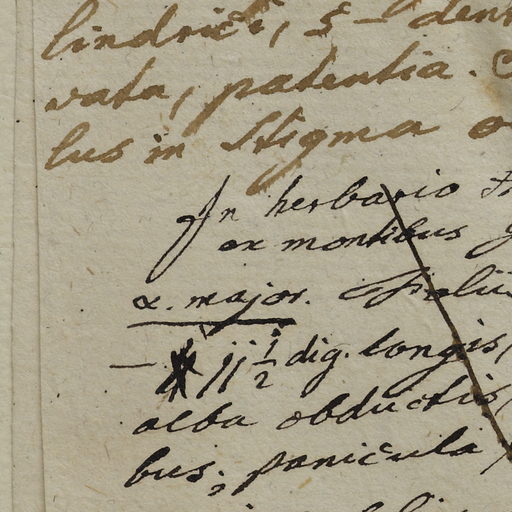 lindrici, 5-den
vata, patentia.
lus in Stigma
In herbario
ex montibus
α. major. Foliis
— jj 1/2 dig. longis,
alba obductis,
bus; panicula